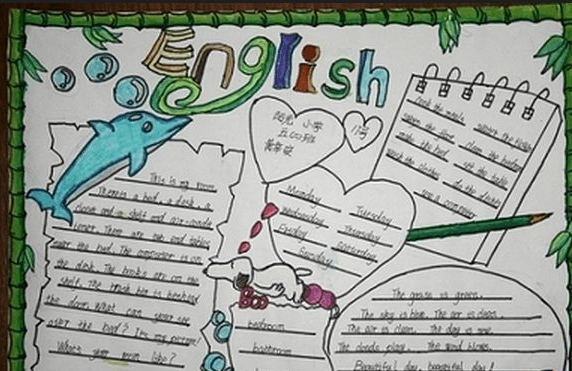 English
阳光 小学
五(4)班
17号
This is my room.
There is a bed, a desk, a
closet and a shelf and air-condi
tioner. There are end tables
near the bed. The computer is on
the desk. The books are on the
shelf. The trash bin is behind
the door. What can you see
after the bed? It's my picture!
What's your room like?
Monday
Tuesday
Wednesday
Thursday
Friday
Saturday
Sunday
cook the meals
water the flowers
sweep the floor
clean the bedroom
make the bed
set the table
wash the clothes
do the dishes
use a computer
bedroom
bathroom
The grass is green.
The sky is blue. The air is clean.
The air is clean. The day is new.
The clouds play. The wind blows.
Beautiful day, beautiful day!